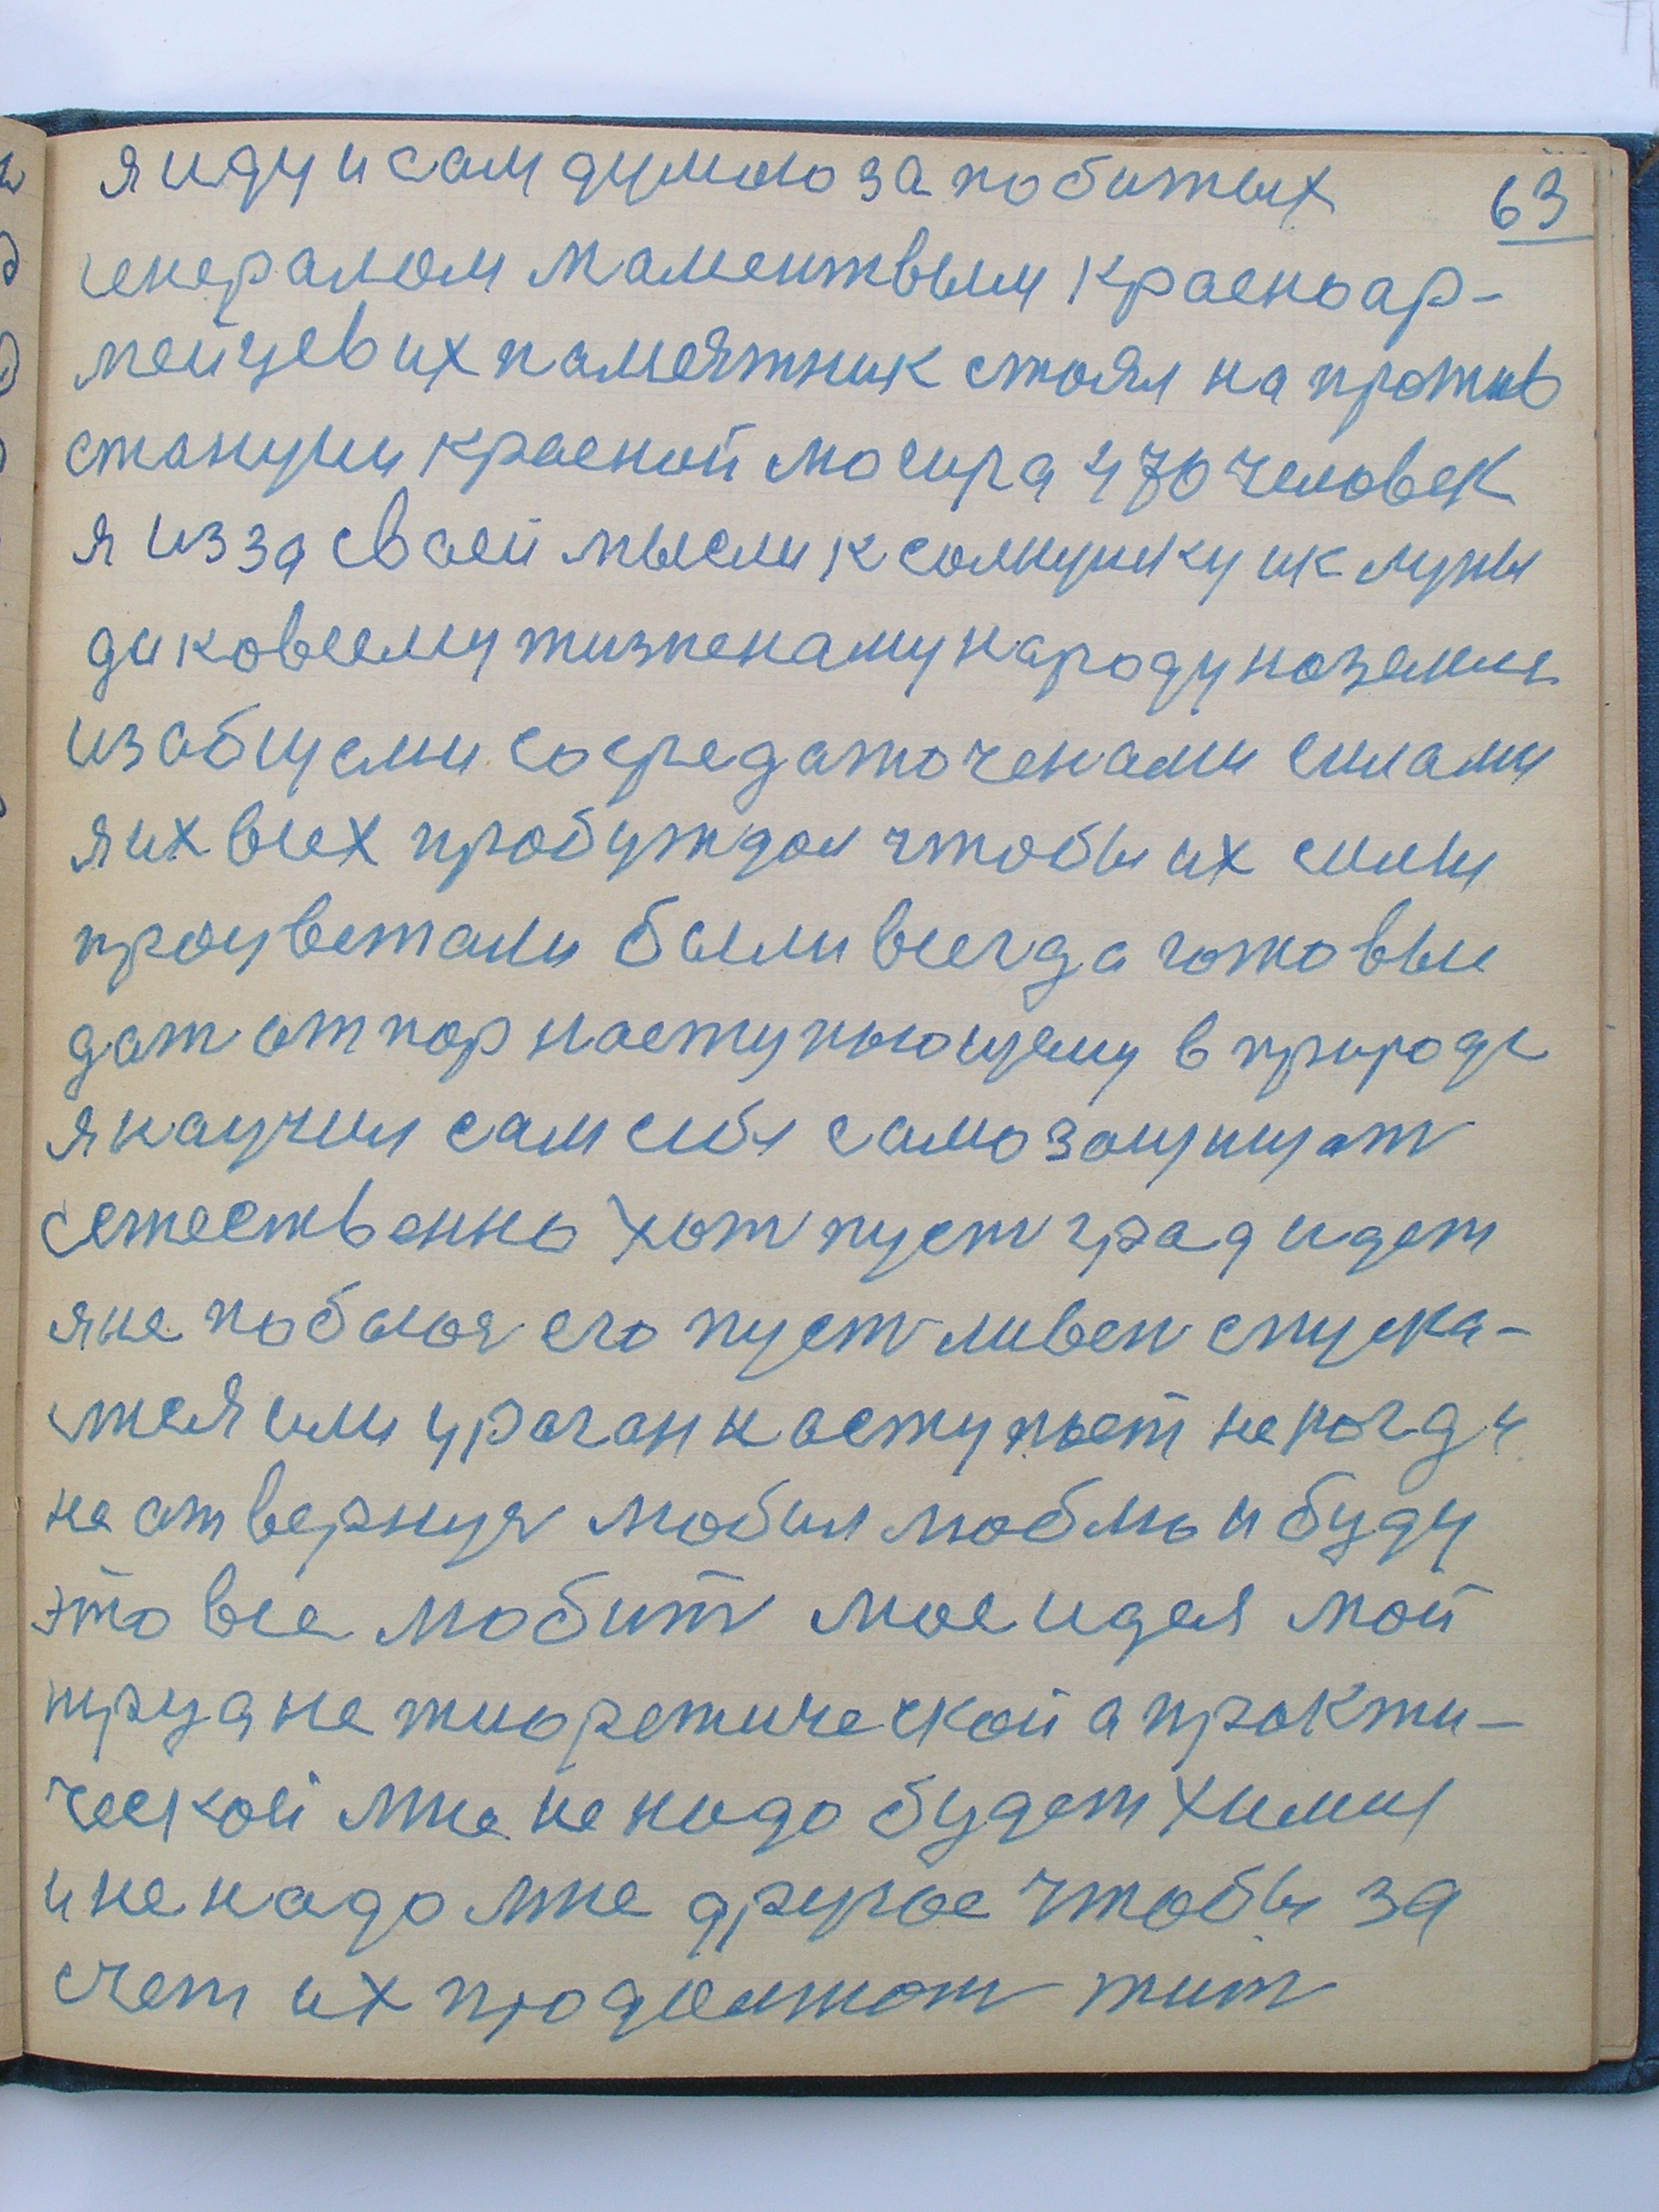 я иду и сам думою за побитых 63
генералом Маментвым красноар-
мейцев их памеятник стоял на против
станции красной могира 470 человек
я из за своей мысли к солнушку и к луны
да ко всему жизненаму народу на земле
из абщеми сосредаточенами силами
я их всех пробуждал чтобы их силы
процветали были всегда готовые
дат отпор наступающему в природе
я научил сам себя самозащищат
естественно хот пуст град идет
я не поблюя его пуст ливен спуска-
ится или ураган наступает не когды
не отвернуя любил люблю и буду
это все любит мое идея мой
труд не тиоретической а практи-
ческой мне не надо будет химия
и не надо мне другое чтобы за
счет их продолжат жит